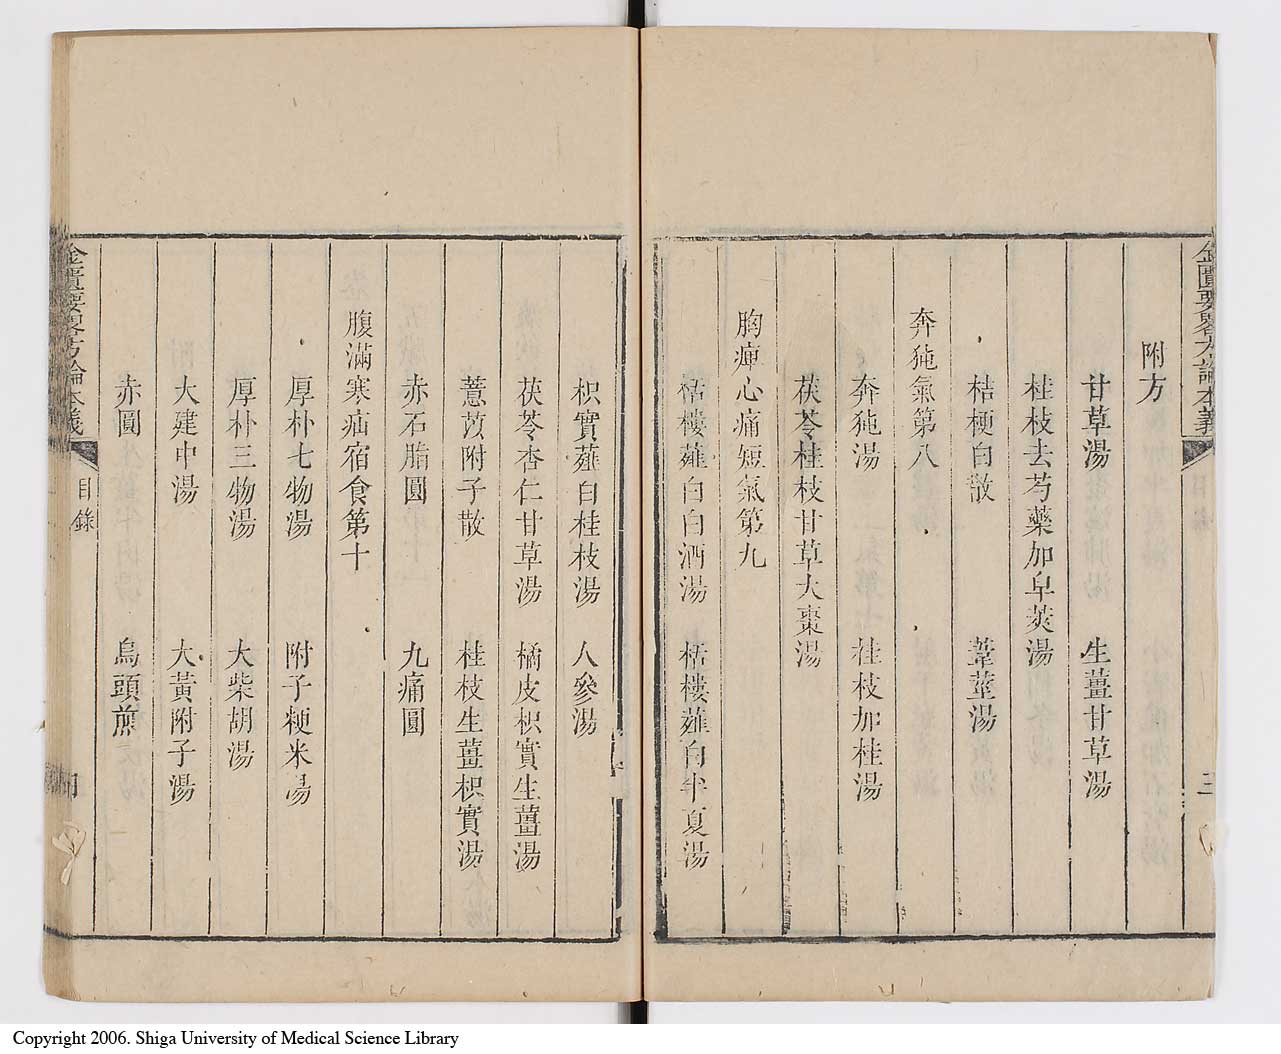 金匱要畧方論本義
三
附方
甘草湯　生薑甘草湯
桂枝去芍藥加皁莢湯
桔梗白散　葦莖湯
奔㹠氣第八
奔㹠湯　桂枝加桂湯
茯苓桂枝甘草大棗湯
胸痺心痛短氣第九
栝樓薤白白酒湯　栝樓薤白半夏湯
枳實薤白桂枝湯　人參湯
茯苓杏仁甘草湯　橘皮枳實生薑湯
薏苡附子散　桂枝生薑枳實湯
赤石脂圓　九痛圓
腹滿寒疝宿食第十
厚朴七物湯　附子粳米湯
厚朴三物湯　大柴胡湯
大建中湯　大黃附子湯
赤圓　烏頭煎
金匱要畧方論本義
目錄
Copyright 2006. Shiga University of Medical Science Library